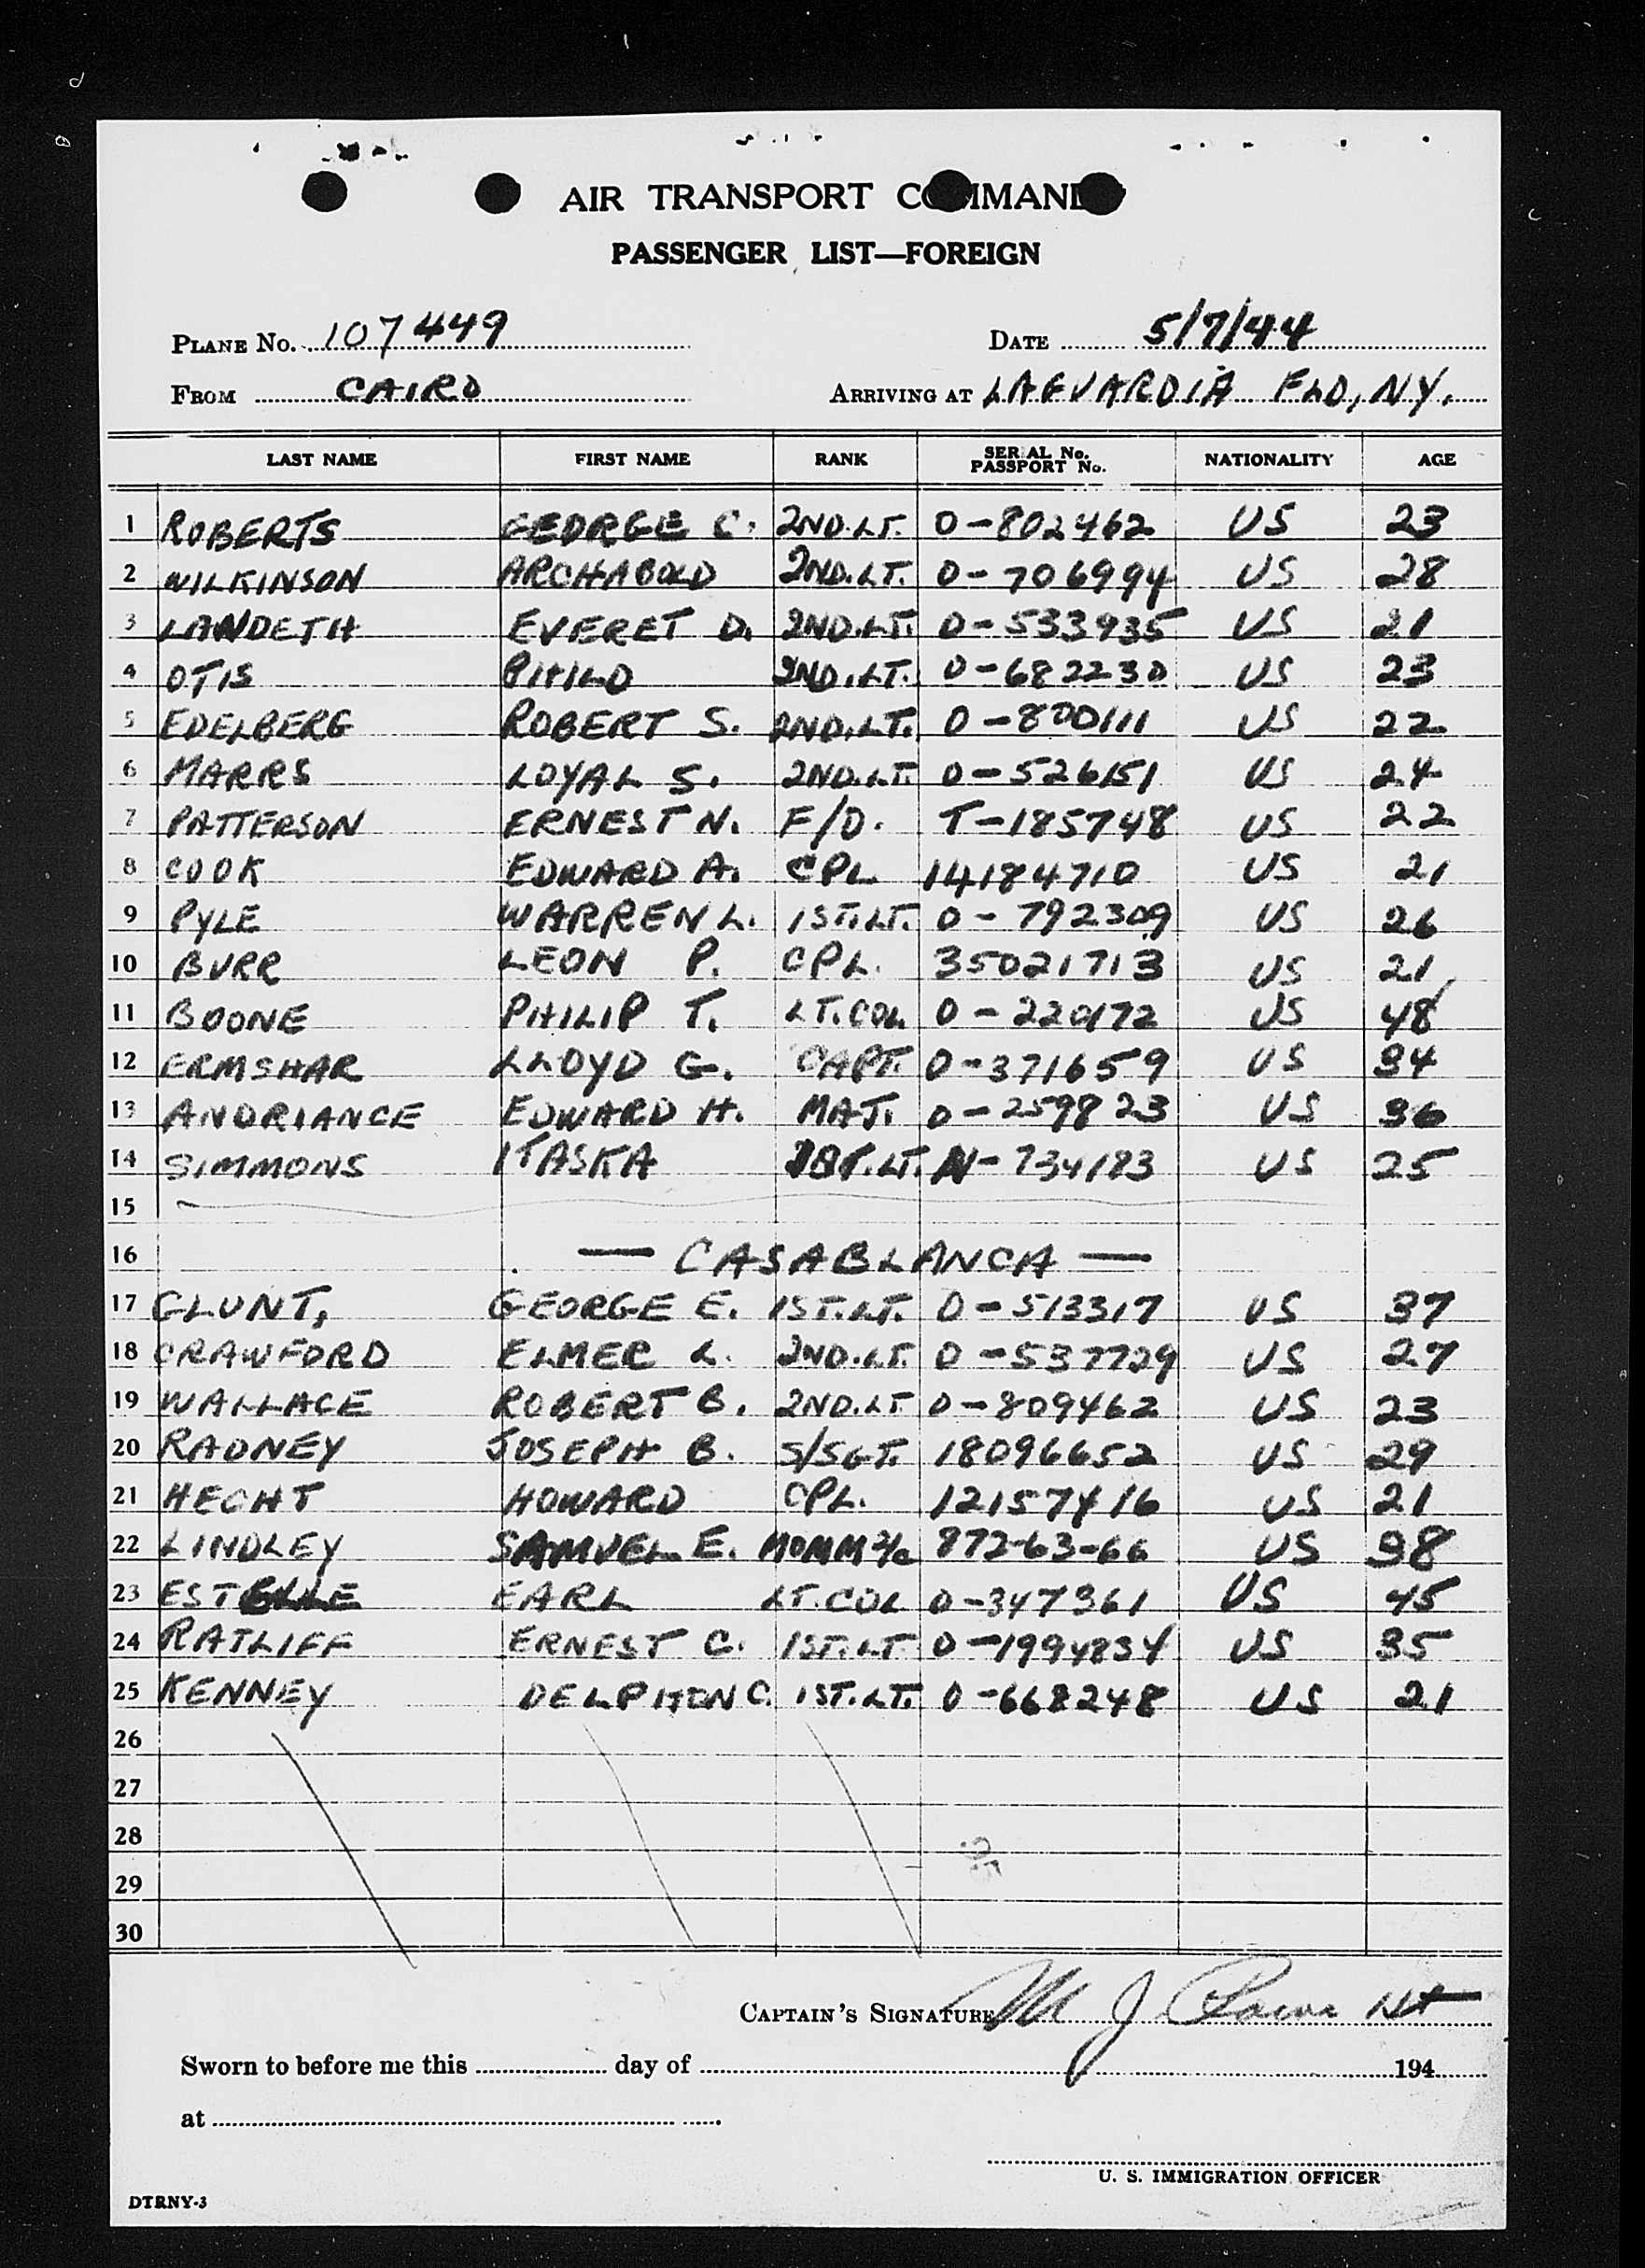 AIR TRANSPORT COMMAND
PASSENGER LIST—FOREIGN
PLANE No. 107449 DATE 5/7/44
FROM CAIRO ARRIVING AT LAGUARDIA FLD, NY.
LAST NAME FIRST NAME RANK SERIAL No. PASSPORT No. NATIONALITY AGE
1 ROBERTS GEORGE C. 2ND.LT. O-802462 US 23
2 WILKINSON ARCHABOLD 2ND.LT. O-706994 US 28
3 LANDETH EVERET D. 2ND.LT. O-533935 US 21
4 OTIS PHILO 2ND.LT. O-682230 US 23
5 EDELBERG ROBERT S. 2ND.LT. O-800111 US 22
6 MARRS LOYAL S. 2ND.LT. O-526151 US 24
7 PATTERSON ERNEST N. F/O. T-185748 US 22
8 COOK EDWARD A. CPL 14184710 US 21
9 PYLE WARREN L. 1ST.LT. O-792309 US 26
10 BURR LEON P. CPL. 35021713 US 21
11 BOONE PHILIP T. LT.COL. O-220172 US 48
12 ERMSHAR LLOYD G. CAPT. O-371659 US 34
13 ANDRIANCE EDWARD H. MAJ. O-259823 US 36
14 SIMMONS ITASKA 1ST.LT. N-734183 US 25
15
16 — CASABLANCA —
17 GLUNT, GEORGE E. 1ST.LT. O-513317 US 37
18 CRAWFORD ELMER L. 2ND.LT. O-537729 US 27
19 WALLACE ROBERT B. 2ND.LT O-809462 US 23
20 RADNEY JOSEPH B. S/SGT. 18096652 US 29
21 HECHT HOWARD CPL. 12157416 US 21
22 LINDLEY SAMUEL E. MOMM 2/c 872-63-66 US 38
23 ESTELLE EARL LT.COL O-347361 US 45
24 RATLIFF ERNEST C. 1ST.LT O-1994834 US 35
25 KENNEY DELPHON C. 1ST.LT. O-668248 US 21
26
27
28
29
30
CAPTAIN'S SIGNATURE M J
Sworn to before me this day of 194
at
U. S. IMMIGRATION OFFICER
DTRNY-3